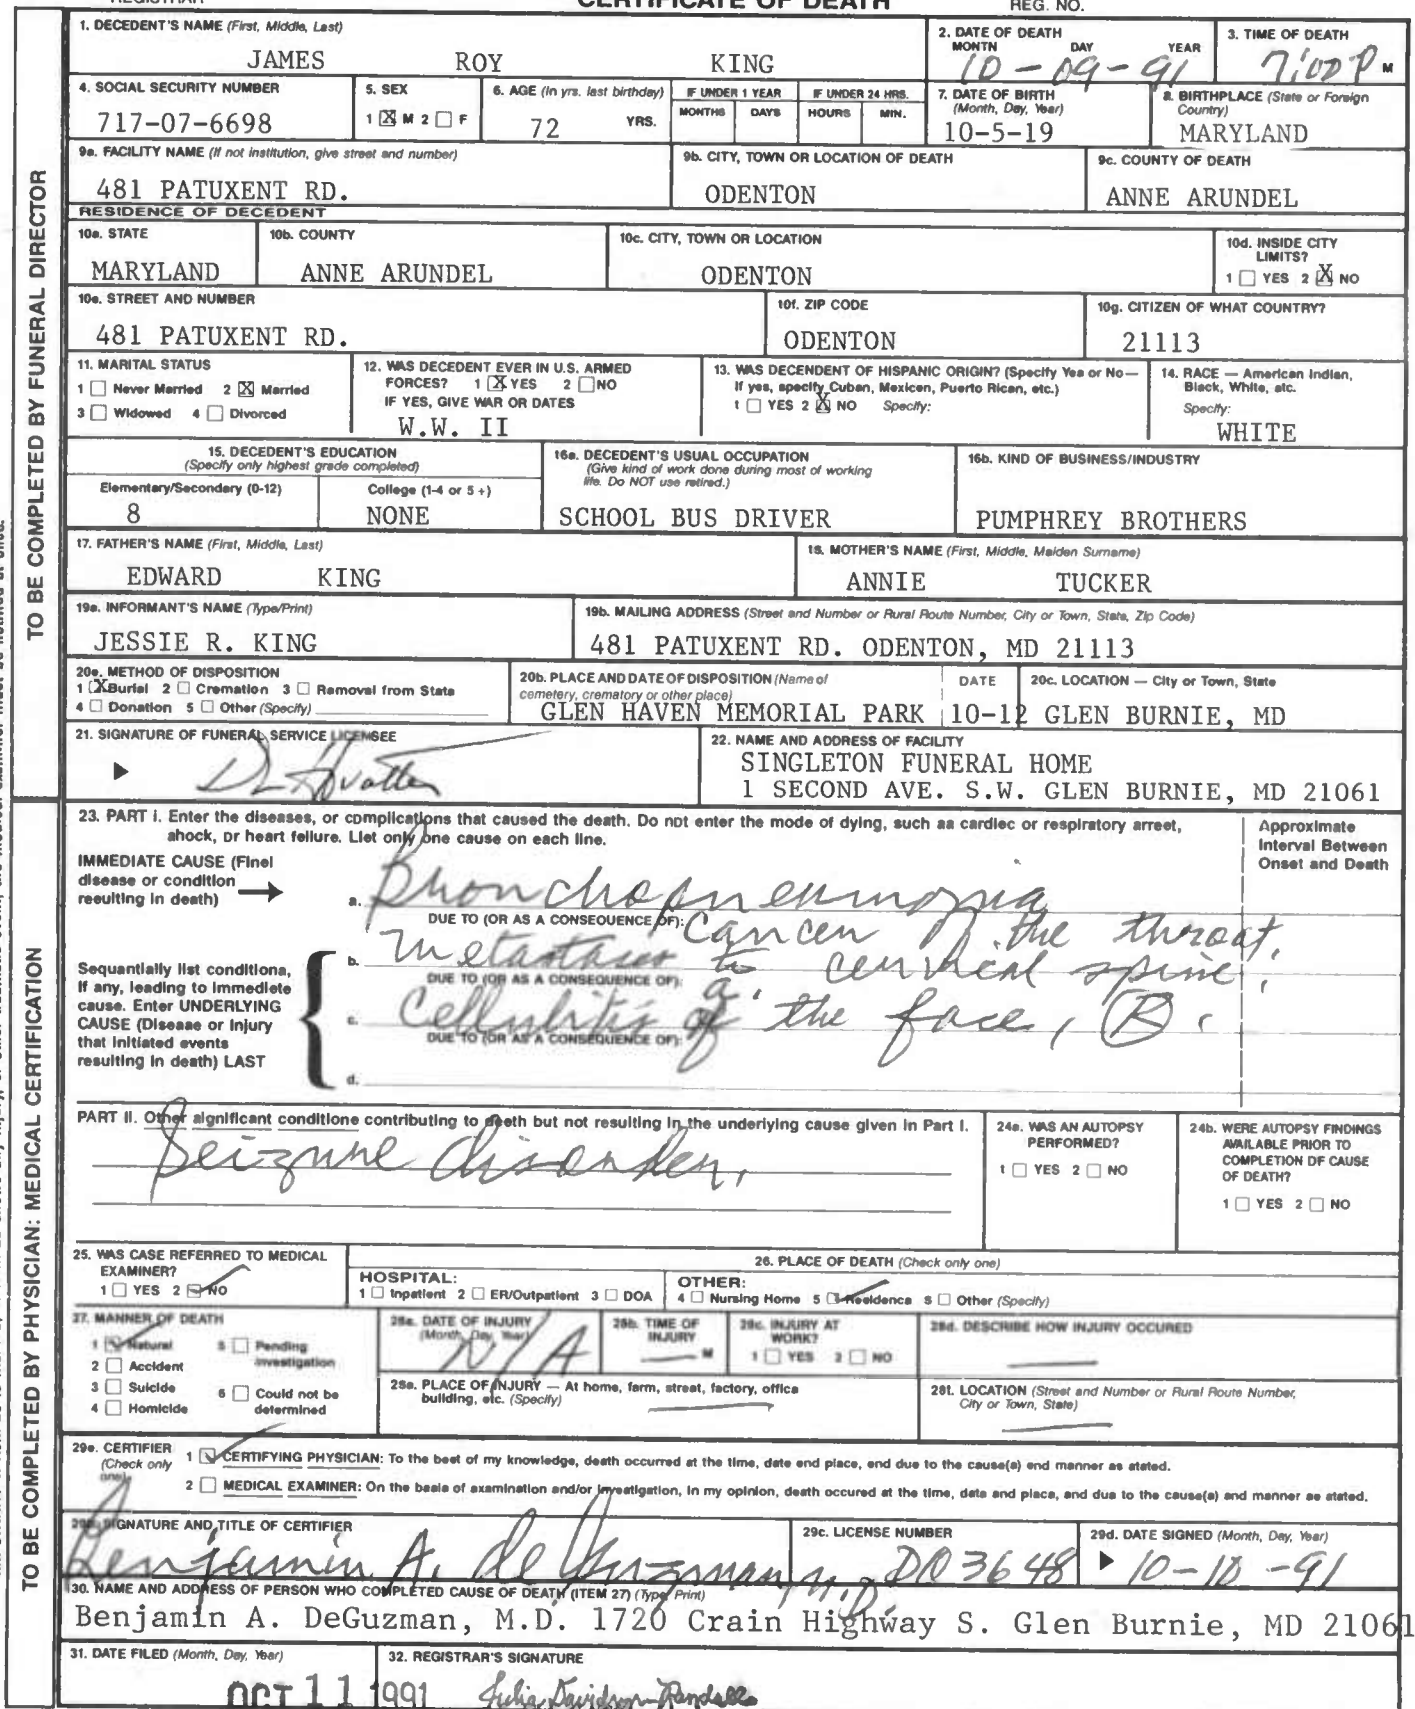 REGISTRAR CERTIFICATE OF DEATH REG. NO.
TO BE COMPLETED BY FUNERAL DIRECTOR
1. DECEDENT'S NAME (First, Middle, Last)
JAMES ROY KING
2. DATE OF DEATH
MONTH DAY YEAR
10-09-91
3. TIME OF DEATH
7:00 P M
4. SOCIAL SECURITY NUMBER
717-07-6698
5. SEX
1 ☒ M 2 ☐ F
6. AGE (In yrs. last birthday)
72 YRS.
IF UNDER 1 YEAR
MONTHS DAYS
IF UNDER 24 HRS.
HOURS MIN.
7. DATE OF BIRTH
(Month, Day, Year)
10-5-19
8. BIRTHPLACE (State or Foreign
Country)
MARYLAND
9a. FACILITY NAME (If not institution, give street and number)
481 PATUXENT RD.
9b. CITY, TOWN OR LOCATION OF DEATH
ODENTON
9c. COUNTY OF DEATH
ANNE ARUNDEL
RESIDENCE OF DECEDENT
10a. STATE
MARYLAND
10b. COUNTY
ANNE ARUNDEL
10c. CITY, TOWN OR LOCATION
ODENTON
10d. INSIDE CITY
LIMITS?
1 ☐ YES 2 ☒ NO
10e. STREET AND NUMBER
481 PATUXENT RD.
10f. ZIP CODE
ODENTON
10g. CITIZEN OF WHAT COUNTRY?
21113
11. MARITAL STATUS
1 ☐ Never Married 2 ☒ Married
3 ☐ Widowed 4 ☐ Divorced
12. WAS DECEDENT EVER IN U.S. ARMED
FORCES? 1 ☒ YES 2 ☐ NO
IF YES, GIVE WAR OR DATES
W.W. II
13. WAS DECENDENT OF HISPANIC ORIGIN? (Specify Yes or No—
If yes, specify Cuban, Mexican, Puerto Rican, etc.)
1 ☐ YES 2 ☒ NO Specify:
14. RACE — American Indian,
Black, White, etc.
Specify:
WHITE
15. DECEDENT'S EDUCATION
(Specify only highest grade completed)
Elementary/Secondary (0-12)
8
College (1-4 or 5 +)
NONE
16a. DECEDENT'S USUAL OCCUPATION
(Give kind of work done during most of working
life. Do NOT use retired.)
SCHOOL BUS DRIVER
16b. KIND OF BUSINESS/INDUSTRY
PUMPHREY BROTHERS
17. FATHER'S NAME (First, Middle, Last)
EDWARD KING
18. MOTHER'S NAME (First, Middle, Maiden Surname)
ANNIE TUCKER
19a. INFORMANT'S NAME (Type/Print)
JESSIE R. KING
19b. MAILING ADDRESS (Street and Number or Rural Route Number, City or Town, State, Zip Code)
481 PATUXENT RD. ODENTON, MD 21113
20a. METHOD OF DISPOSITION
1 ☒ Burial 2 ☐ Cremation 3 ☐ Removal from State
4 ☐ Donation 5 ☐ Other (Specify)
20b. PLACE AND DATE OF DISPOSITION (Name of
cemetery, crematory or other place)
GLEN HAVEN MEMORIAL PARK
DATE
10-12
20c. LOCATION — City or Town, State
GLEN BURNIE, MD
21. SIGNATURE OF FUNERAL SERVICE LICENSEE
22. NAME AND ADDRESS OF FACILITY
SINGLETON FUNERAL HOME
1 SECOND AVE. S.W. GLEN BURNIE, MD 21061
TO BE COMPLETED BY PHYSICIAN: MEDICAL CERTIFICATION
23. PART I. Enter the diseases, or complications that caused the death. Do not enter the mode of dying, such as cardiac or respiratory arrest,
shock, or heart failure. List only one cause on each line.
Approximate
Interval Between
Onset and Death
IMMEDIATE CAUSE (Final
disease or condition
resulting in death)
a. Bronchopneumonia
DUE TO (OR AS A CONSEQUENCE OF):
Cancer of the throat,
Sequentially list conditions,
if any, leading to immediate
cause. Enter UNDERLYING
CAUSE (Disease or injury
that initiated events
resulting in death) LAST
b. metastasis to cervical spine;
DUE TO (OR AS A CONSEQUENCE OF):
c. Cellulitis of the face, Ⓡ.
DUE TO (OR AS A CONSEQUENCE OF):
d.
PART II. Other significant conditions contributing to death but not resulting in the underlying cause given in Part I.
Seizure disorder,
24a. WAS AN AUTOPSY
PERFORMED?
1 ☐ YES 2 ☐ NO
24b. WERE AUTOPSY FINDINGS
AVAILABLE PRIOR TO
COMPLETION OF CAUSE
OF DEATH?
1 ☐ YES 2 ☐ NO
25. WAS CASE REFERRED TO MEDICAL
EXAMINER?
1 ☐ YES 2 ☑ NO
26. PLACE OF DEATH (Check only one)
HOSPITAL:
1 ☐ Inpatient 2 ☐ ER/Outpatient 3 ☐ DOA
OTHER:
4 ☐ Nursing Home 5 ☑ Residence 6 ☐ Other (Specify)
27. MANNER OF DEATH
1 ☑ Natural 5 ☐ Pending
investigation
2 ☐ Accident
3 ☐ Suicide 6 ☐ Could not be
4 ☐ Homicide determined
28a. DATE OF INJURY
(Month, Day, Year)
N/A
28b. TIME OF
INJURY
M
28c. INJURY AT
WORK?
1 ☐ YES 2 ☐ NO
28d. DESCRIBE HOW INJURY OCCURED
28e. PLACE OF INJURY — At home, farm, street, factory, office
building, etc. (Specify)
28f. LOCATION (Street and Number or Rural Route Number,
City or Town, State)
29a. CERTIFIER
(Check only
one)
1 ☑ CERTIFYING PHYSICIAN: To the best of my knowledge, death occurred at the time, date and place, and due to the cause(s) and manner as stated.
2 ☐ MEDICAL EXAMINER: On the basis of examination and/or investigation, in my opinion, death occured at the time, date and place, and due to the cause(s) and manner as stated.
29b. SIGNATURE AND TITLE OF CERTIFIER
Benjamin A. de Guzman, M.D.
29c. LICENSE NUMBER
D03648
29d. DATE SIGNED (Month, Day, Year)
10-10-91
30. NAME AND ADDRESS OF PERSON WHO COMPLETED CAUSE OF DEATH (ITEM 27) (Type/Print)
Benjamin A. DeGuzman, M.D. 1720 Crain Highway S. Glen Burnie, MD 21061
31. DATE FILED (Month, Day, Year)
OCT 11 1991
32. REGISTRAR'S SIGNATURE
Julia Davidson-Randall